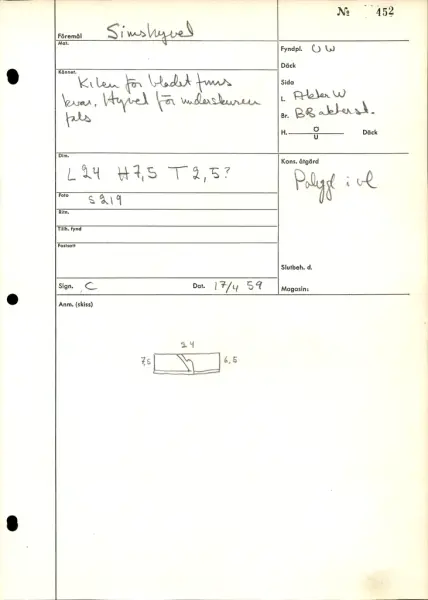 No 452
Föremål Simshyvel
Mat.
Fyndpl. UW
Däck
Sida
Kännet. Kilen för bladet finns
kvar. Hyvel för underskuren
fals
L. Akter W
Br. BB akter st.
H. Ö U Däck
Dim. L 24 H 7,5 T 2,5?
Kons. åtgärd
Polygl i vl
Foto S 219
Ritn.
Tillh. fynd
Fastsatt
Slutbeh. d.
Sign. C Dat. 17/4 59
Magasin:
Anm. (skiss)
24
7,5 6,5